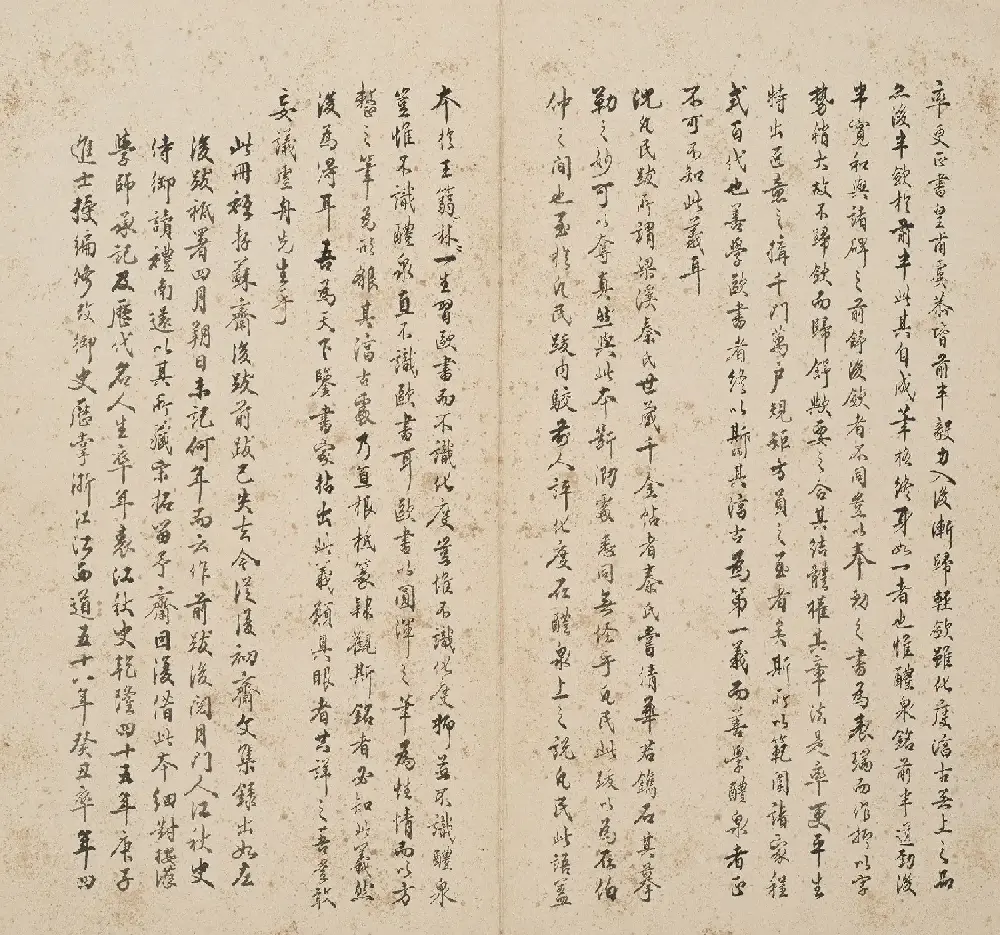 率更正書皇甫虞恭皆前半毅力入後漸歸輕斂雖化度澹古無上之品
然後半斂於前半此其自成筆格終身如一者也惟醴泉銘前半遒勁後
半寬和與諸碑之前舒後斂者不同豈以奉勅之書為表瑞而作抑以字
勢稍大故不歸斂而歸舒歟要之合其結體權其章法是率更平生
特出匠意之構千門萬戶規矩方員之至者矣斯所以範圍諸家程
式百代也善學歐書者終以斯銘其澹古為第一義而善學醴泉者正
不可不知此義耳
沈凡民跋所謂梁溪秦氏世藏千金帖者秦氏嘗倩華君鐫石其摹
勒之妙可以奪真然與此本斷泐處悉同無怪乎凡民此跋以為在伯
仲之間也至於凡民跋內駁前人評化度在醴泉上之說凡民此語蓋
本於王蒻林蒻林一生習歐書而不識化度豈惟不識化度抑並不識醴泉
豈惟不識醴泉直不識歐書耳歐書以圓渾之筆為性情而以方
整之筆為形貌其澹古處乃直根柢篆隸觀斯銘者必知此義然
後為得耳吾為天下鑒書家拈出此義願具眼者共詳之吾豈敢
妄議虛舟先生乎
此冊祗存蘇齋後跋前跋已失去今從復初齋文集錄出如左
後跋祗署四月朔日未記何年而云作前跋後閱月門人江秋史
侍御讀禮南還以其所藏宋拓留予齋因復借此本細對據漢
學師承記及歷代名人生卒年表江秋史乾隆四十五年庚子
進士授編修改御史歷掌浙江江西道五十八年癸丑卒年四